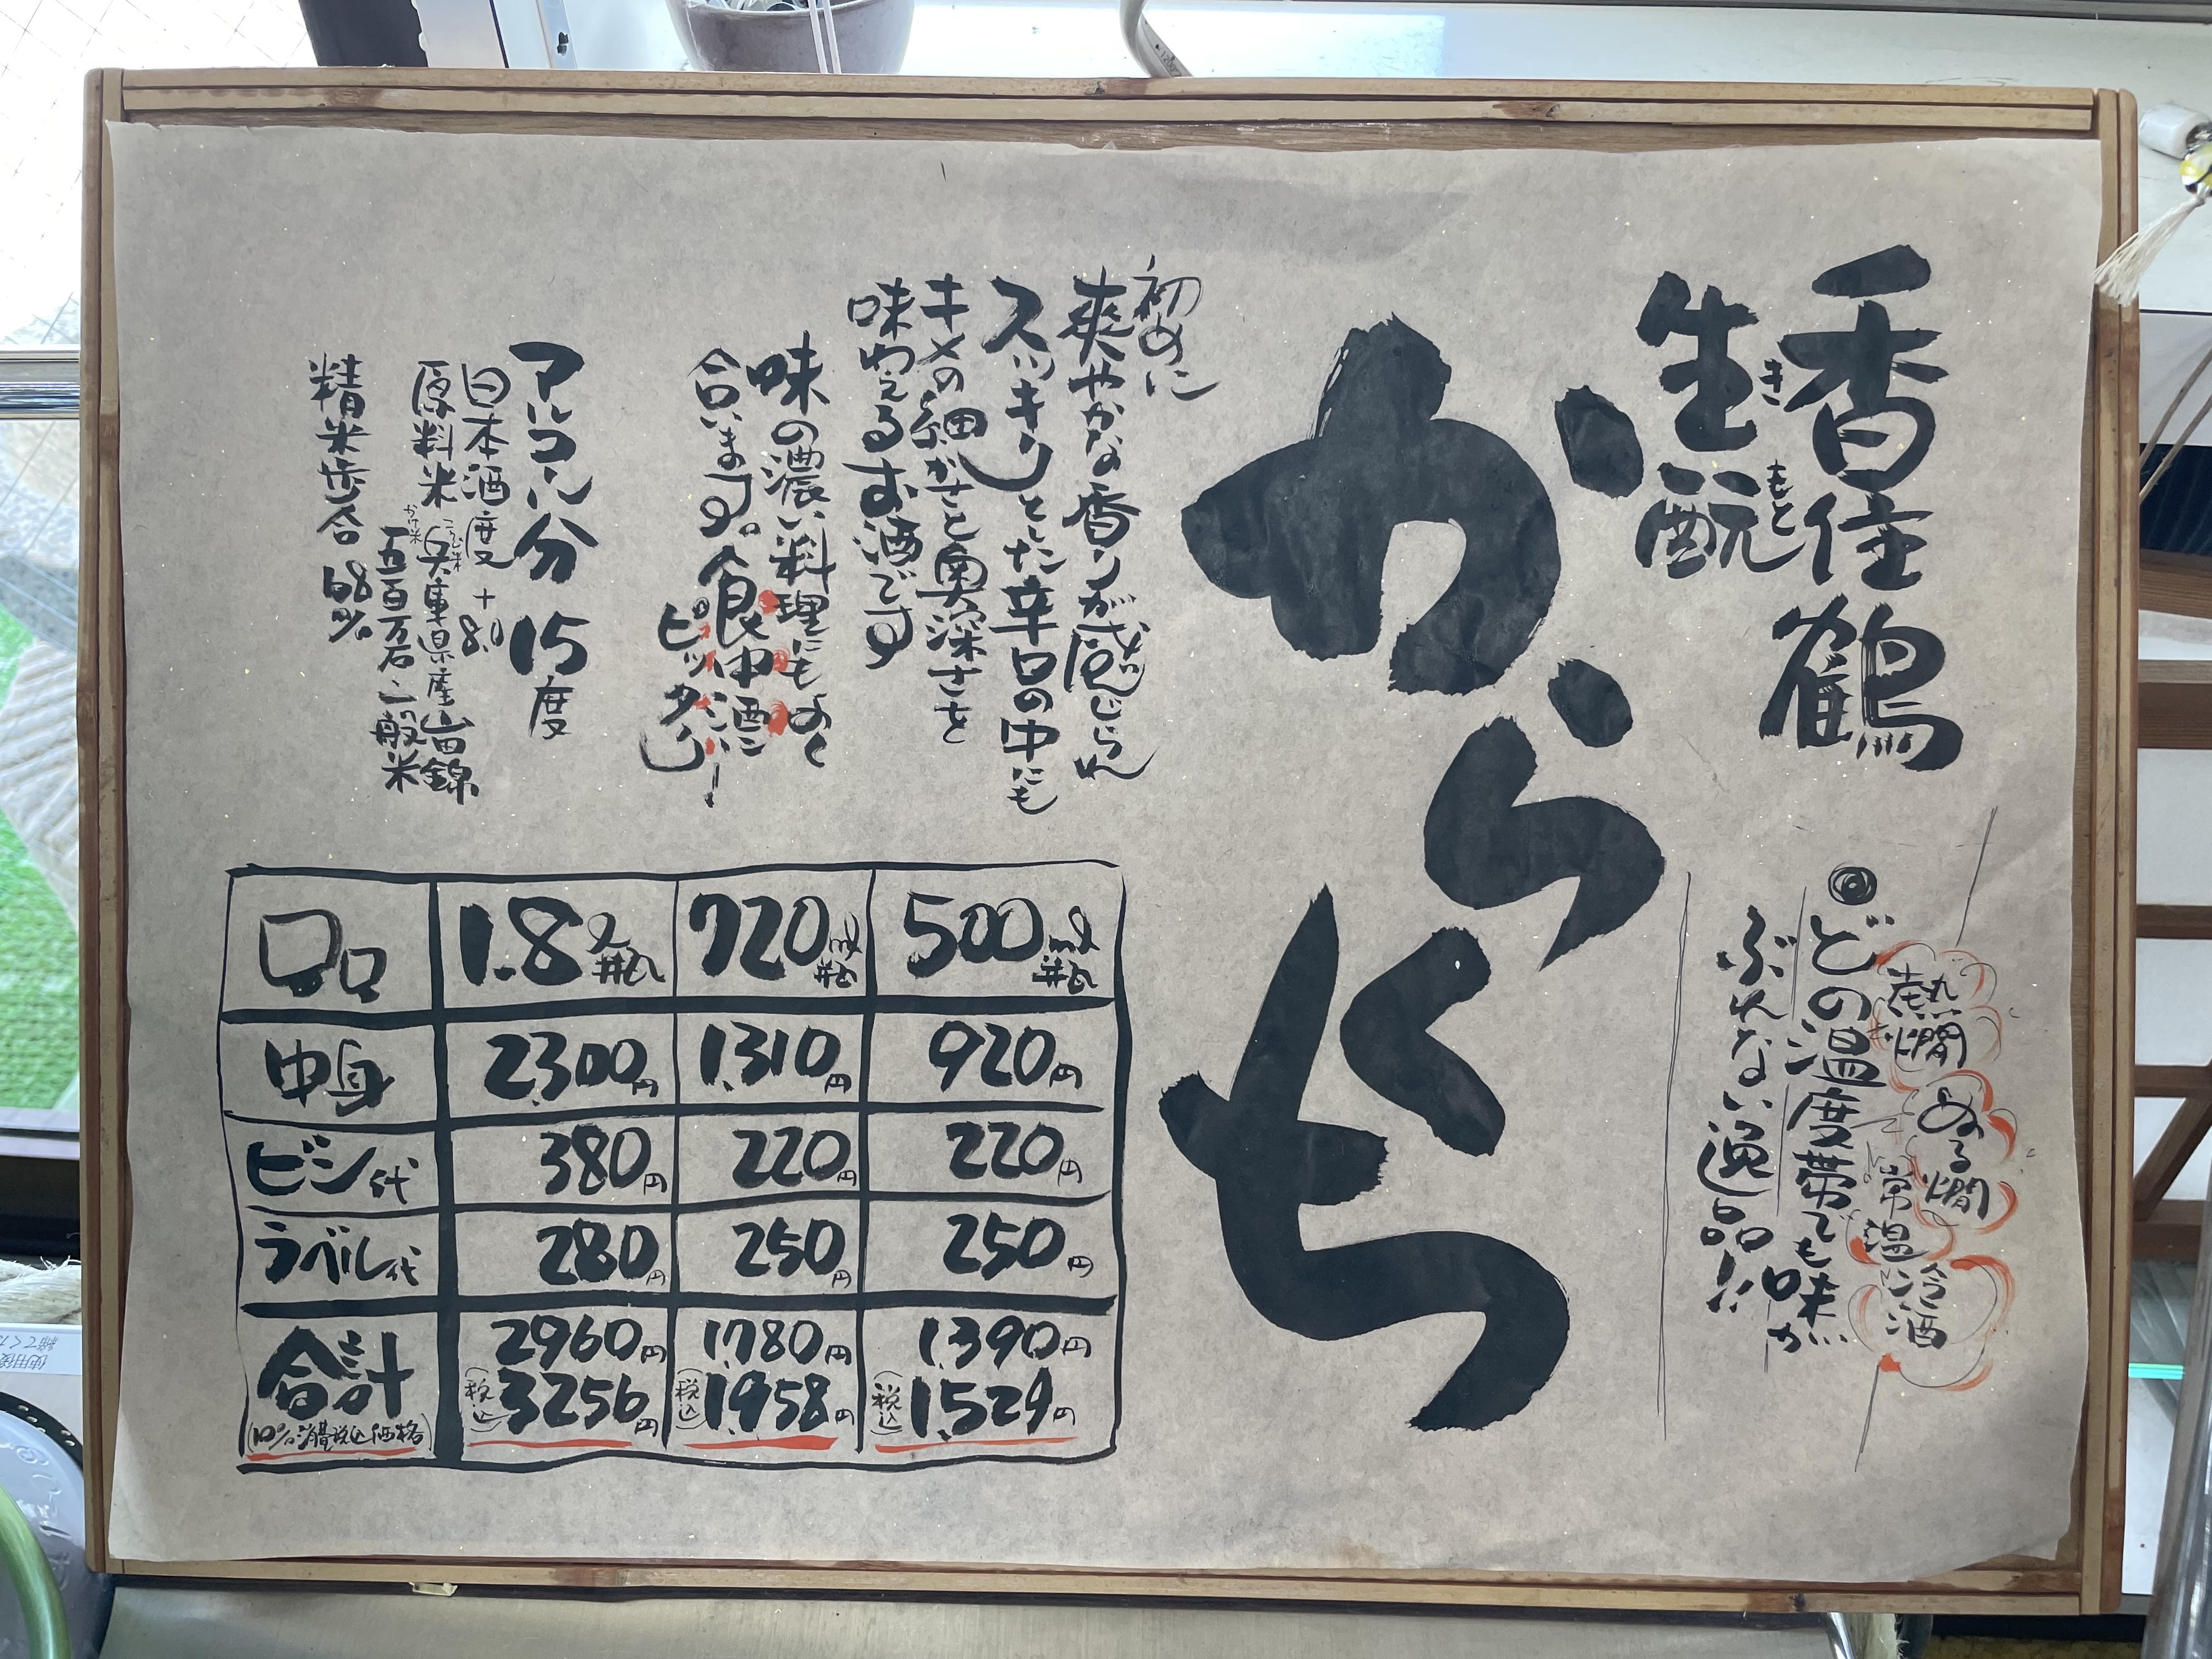 香住鶴
生酛
きもと
からくち
熱燗 ぬる燗
常温 冷酒
◎どの温度帯でも味が
ぶれない逸品!!
初めに
爽やかな香りが感じられ
スッキリとした辛口の中にも
キメの細かさと奥深さを
味わえるお酒です
味の濃い料理にもよく
合います。食中酒に
ピッタリ!
アルコール分 15度
日本酒度 +8.0
原料米 こうじ米 兵庫県産山田錦
かけ米 五百万石、一般米
精米歩合 68%
1.8ℓ瓶 720ml瓶 500ml瓶
中身 2,300円 1,310円 920円
ビン代 380円 220円 220円
ラベル代 280円 250円 250円
合計 2960円 1,780円 1,390円
(10%消費税込価格) (税込)3256円 (税込)1,958円 (税込)1,529円